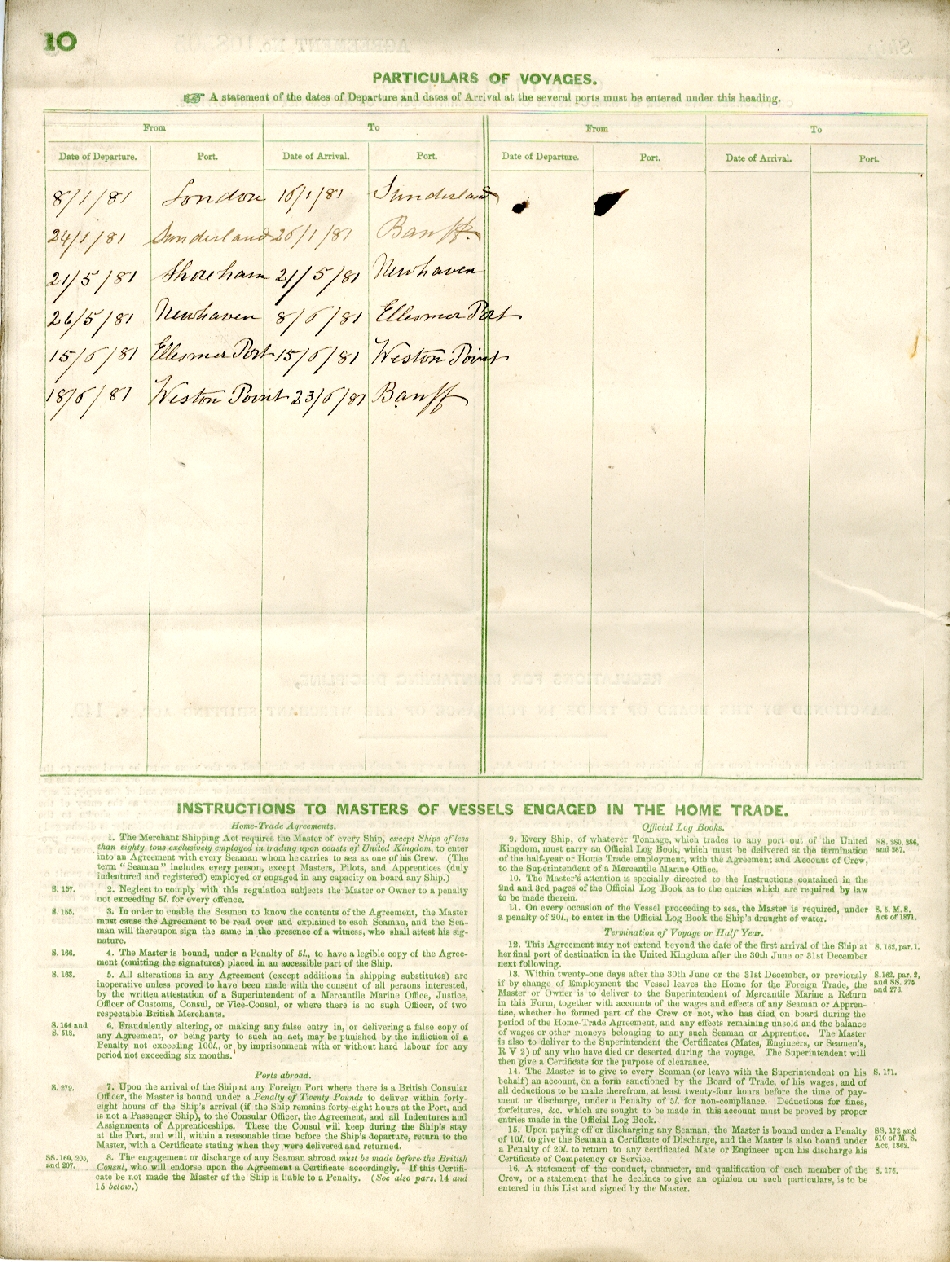 10
PARTICULARS OF VOYAGES.
☞ A statement of the dates of Departure and dates of Arrival at the several ports must be entered under this heading.
From To From To
Date of Departure. Port. Date of Arrival. Port. Date of Departure. Port. Date of Arrival. Port.
8/1/81 London 16/1/81 Sunderland
24/1/81 Sunderland 26/1/81 Banff.
21/5/81 Shoreham 21/5/81 Newhaven
26/5/81 Newhaven 8/6/81 Ellesmer Port
15/6/81 Ellesmer Port 15/6/81 Weston Point
18/6/81 Weston Point 23/6/81 Banff
INSTRUCTIONS TO MASTERS OF VESSELS ENGAGED IN THE HOME TRADE.
Home-Trade Agreements.
1. The Merchant Shipping Act require the Master of every Ship, except Ships of less
than eighty tons exclusively employed in trading upon coasts of United Kingdom, to enter
into an Agreement with every Seaman whom he carries to sea as one of his Crew. (The
term "Seaman" includes every person, except Masters, Pilots, and Apprentices (duly
indentured and registered) employed or engaged in any capacity on board any Ship.)
S. 157. 2. Neglect to comply with this regulation subjects the Master or Owner to a penalty
not exceeding 5l. for every offence.
S. 155. 3. In order to enable the Seamen to know the contents of the Agreement, the Master
must cause the Agreement to be read over and explained to each Seaman, and the Sea-
man will thereupon sign the same in the presence of a witness, who shall attest his sig-
nature.
S. 166. 4. The Master is bound, under a Penalty of 5l., to have a legible copy of the Agree-
ment (omitting the signatures) placed in an accessible part of the Ship.
S. 163. 5. All alterations in any Agreement (except additions in shipping substitutes) are
inoperative unless proved to have been made with the consent of all persons interested,
by the written attestation of a Superintendent of a Mercantile Marine Office, Justice,
Officer of Customs, Consul, or Vice-Consul, or where there is no such Officer, of two
respectable British Merchants.
S. 164 and 6. Fraudulently altering, or making any false entry in, or delivering a false copy of
any Agreement, or being party to such an act, may be punished by the infliction of a
Penalty not exceeding 100l., or by imprisonment with or without hard labour for any
period not exceeding six months.
Ports abroad.
S. 279. 7. Upon the arrival of the Ship at any Foreign Port where there is a British Consular
Officer, the Master is bound under a Penalty of Twenty Pounds to deliver within forty-
eight hours of the Ship's arrival (if the Ship remains forty-eight hours at the Port, and
is not a Passenger Ship), to the Consular Officer, the Agreement, and all Indentures and
Assignments of Apprenticeships. These the Consul will keep during the Ship's stay
at the Port, and will, within a reasonable time before the Ship's departure, return to the
Master, with a Certificate stating when they were delivered and returned.
SS. 160, 205, and 207. 8. The engagement or discharge of any Seaman abroad must be made before the British
Consul, who will endorse upon the Agreement a Certificate accordingly. If this Certifi-
cate be not made the Master of the Ship is liable to a Penalty. (See also pars. 14 and
15 below.)
Official Log Books.
9. Every Ship, of whatever Tonnage, which trades to any port out of the United
Kingdom, must carry an Official Log Book, which must be delivered at the termination
of the half-year or Home Trade employment, with the Agreement and Account of Crew,
to the Superintendent of a Mercantile Marine Office.
10. The Master's attention is specially directed to the Instructions contained in the
2nd and 3rd pages of the Official Log Book as to the entries which are required by law
to be made therein.
11. On every occasion of the Vessel proceeding to sea, the Master is required, under
a penalty of 20l., to enter in the Official Log Book the Ship's draught of water. Act of 1871.
Termination of Voyage or Half Year.
12. This Agreement may not extend beyond the date of the first arrival of the Ship at
her final port of destination in the United Kingdom after the 30th June or 31st December
next following.
13. Within twenty-one days after the 30th June or the 31st December, or previously
if by change of Employment the Vessel leaves the Home for the Foreign Trade, the
Master or Owner is to deliver to the Superintendent of Mercantile Marine a Return
in this Form, together with accounts of the wages and effects of any Seaman or Appren-
tice, whether he formed part of the Crew or not, who has died on board during the
period of the Home-Trade Agreement, and any effects remaining unsold and the balance
of wages or other moneys belonging to any such Seaman or Apprentice. The Master
is also to deliver to the Superintendent the Certificates (Mates, Engineers, or Seamen's,
R V 2) of any who died or deserted during the voyage. The Superintendent will
then give a Certificate for the purpose of clearance.
14. The Master is to give to every Seaman (or leave with the Superintendent on his S. 171.
behalf) an account, on a form sanctioned by the Board of Trade, of his wages, and of
all deductions to be made therefrom, at least twenty-four hours before the time of pay-
ment or discharge, under a Penalty of 5l. for non-compliance. Deductions for fines,
forfeitures, &c. which are sought to be made in this account must be proved by proper
entries made in the Official Log Book.
15. Upon paying off or discharging any Seaman, the Master is bound under a Penalty
of 10l. to give the Seaman a Certificate of Discharge, and the Master is also bound under
a Penalty of 20l. to return to any certificated Mate or Engineer upon his discharge his
Certificate of Competency or Service.
16. A statement of the conduct, character, and qualification of each member of the
Crew, or a statement that he declines to give an opinion on such particulars, is to be
entered in this List and signed by the Master.